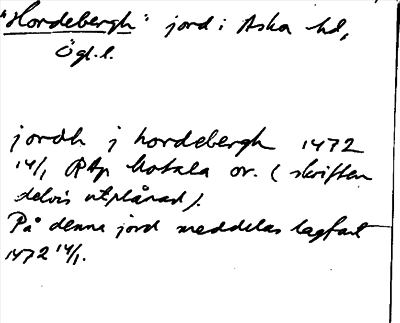 "Hordebergh" jord i Aska hd,
Ögl.l.
jordh j hordebergh 1472
14/1 RAp Motala or. (skriften
delvis utplånad).
På denna jord meddelas lagfart
1472 14/1.